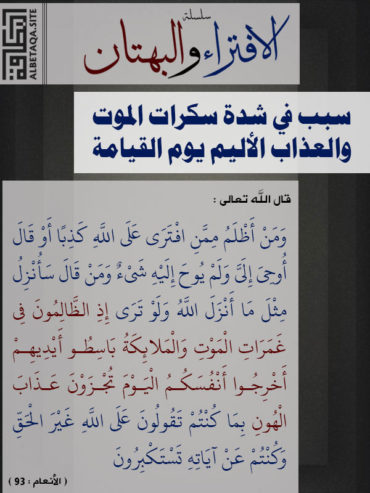 سلسلة
الافتراء والبهتان
البطاقة
ALBETAQA.SITE
سبب في شدة سكرات الموت
والعذاب الأليم يوم القيامة
قال الله تعالى :
وَمَنْ أَظْلَمُ مِمَّنِ افْتَرَى عَلَى اللَّهِ كَذِبًا أَوْ قَالَ
أُوحِيَ إِلَيَّ وَلَمْ يُوحَ إِلَيْهِ شَيْءٌ وَمَنْ قَالَ سَأُنْزِلُ
مِثْلَ مَا أَنْزَلَ اللَّهُ وَلَوْ تَرَى إِذِ الظَّالِمُونَ فِي
غَمَرَاتِ الْمَوْتِ وَالْمَلَائِكَةُ بَاسِطُو أَيْدِيهِمْ
أَخْرِجُوا أَنْفُسَكُمُ الْيَوْمَ تُجْزَوْنَ عَذَابَ
الْهُونِ بِمَا كُنْتُمْ تَقُولُونَ عَلَى اللَّهِ غَيْرَ الْحَقِّ
وَكُنْتُمْ عَنْ آيَاتِهِ تَسْتَكْبِرُونَ
( الأنعام : 93 )